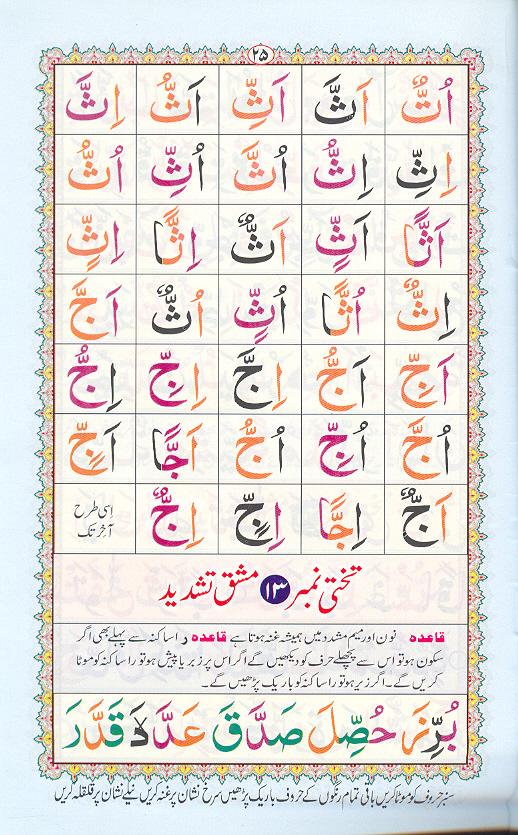 ۲۵
اُتٌّ اَثَّ اَثِّ اَثُّ اِثَّ
اِثِّ اِثُّ اُثَّ اُثِّ اُثُّ
اَثًّا اَثٍّ اَثٌّ اِثًّا اِثٍّ
اِثٌّ اُثًّا اُثٍّ اُثٌّ اَجَّ
اَجِّ اَجُّ اِجَّ اِجِّ اِجُّ
اُجَّ اُجِّ اُجُّ اَجًّا اَجٍّ
اَجٌّ اِجًّا اِجٍّ اِجٌّ اسی طرح آخر تک
تختی نمبر ۱۳ مشق تشدید
قاعدہ نون اور میم مشدد میں ہمیشہ غنہ ہوتا ہے قاعدہ را ساکنہ سے پہلے بھی اگر
سکون ہو تو اس سے پچھلے حرف کو دیکھیں گے اگر اس پر زبر یا پیش ہو تو را ساکنہ کو موٹا
کریں گے۔ اگر زیر ہو تو را ساکنہ کو باریک پڑھیں گے۔
بُرِّزَ حُصِّلَ صَدَّقَ قَدَّرَ
سبز حروف کو موٹا کریں باقی تمام رنگوں کے حروف باریک پڑھیں سرخ نشان پر غنہ کریں نیلے نشان پر قلقلہ کریں